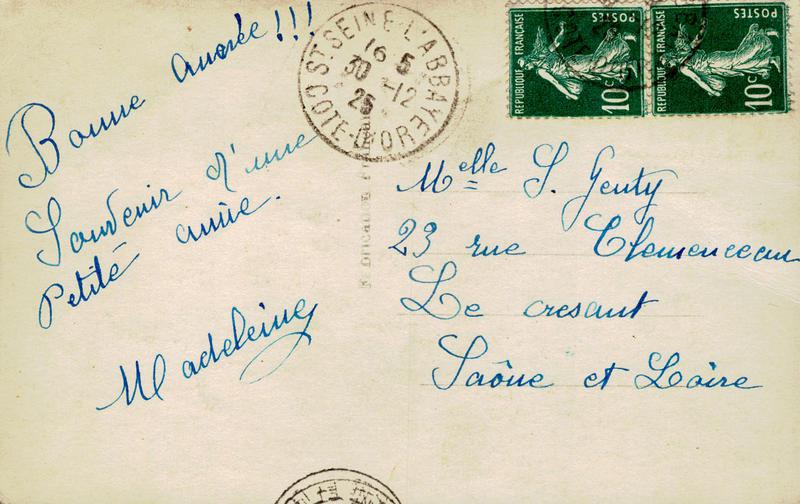 Bonne année !!!
Souvenir d'une
Petite amie.
Madeleine
ST SEINE-L'ABBAYE
16 5
30 -12
25
COTE-D'OR
REPUBLIQUE FRANÇAISE
POSTES
10c
REPUBLIQUE FRANÇAISE
POSTES
10c
Melle S. Genty
23 rue Clemenceau
Le cresant
Saône et Loire